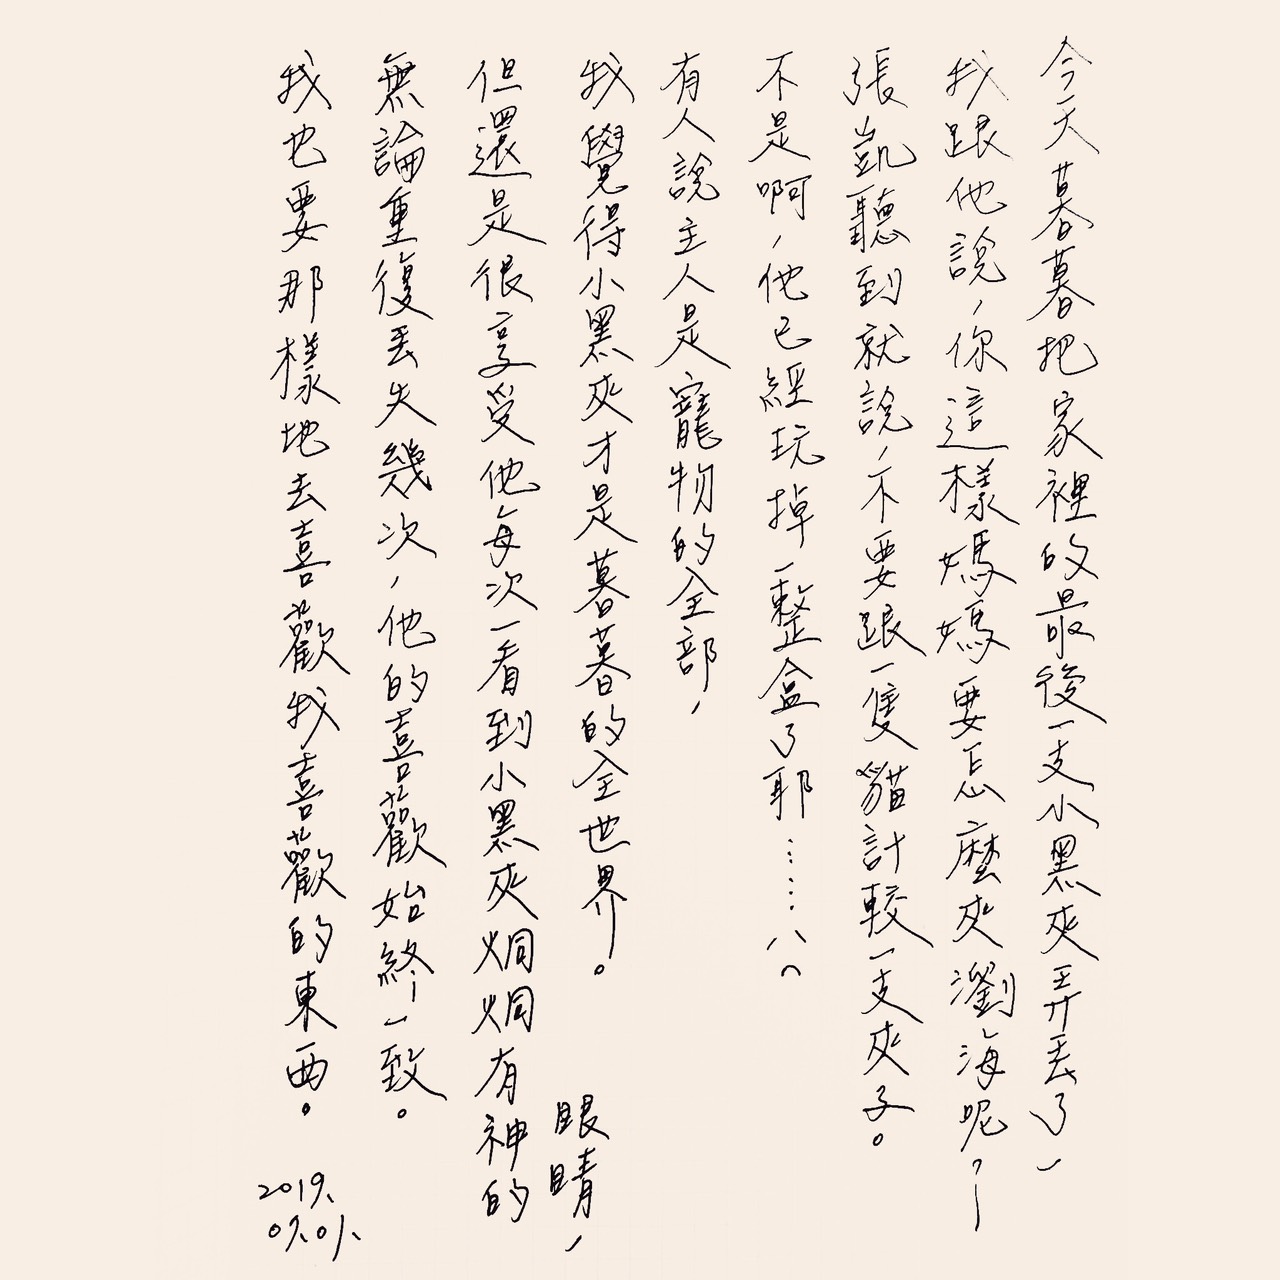 今天暮暮把家裡的最後一支小黑夾弄丟了，
我跟他說，你這樣媽媽要怎麼夾瀏海呢？
張凱聽到就說，不要跟一隻貓計較一支夾子。
不是啊，他已經玩掉一整盒了耶……
有人說主人是寵物的全部，
我覺得小黑夾才是暮暮的全世界。
但還是很享受他每次一看到小黑夾炯炯有神的
眼睛，
無論重復丟失幾次，他的喜歡始終一致。
我也要那樣地去喜歡我喜歡的東西。
2019.